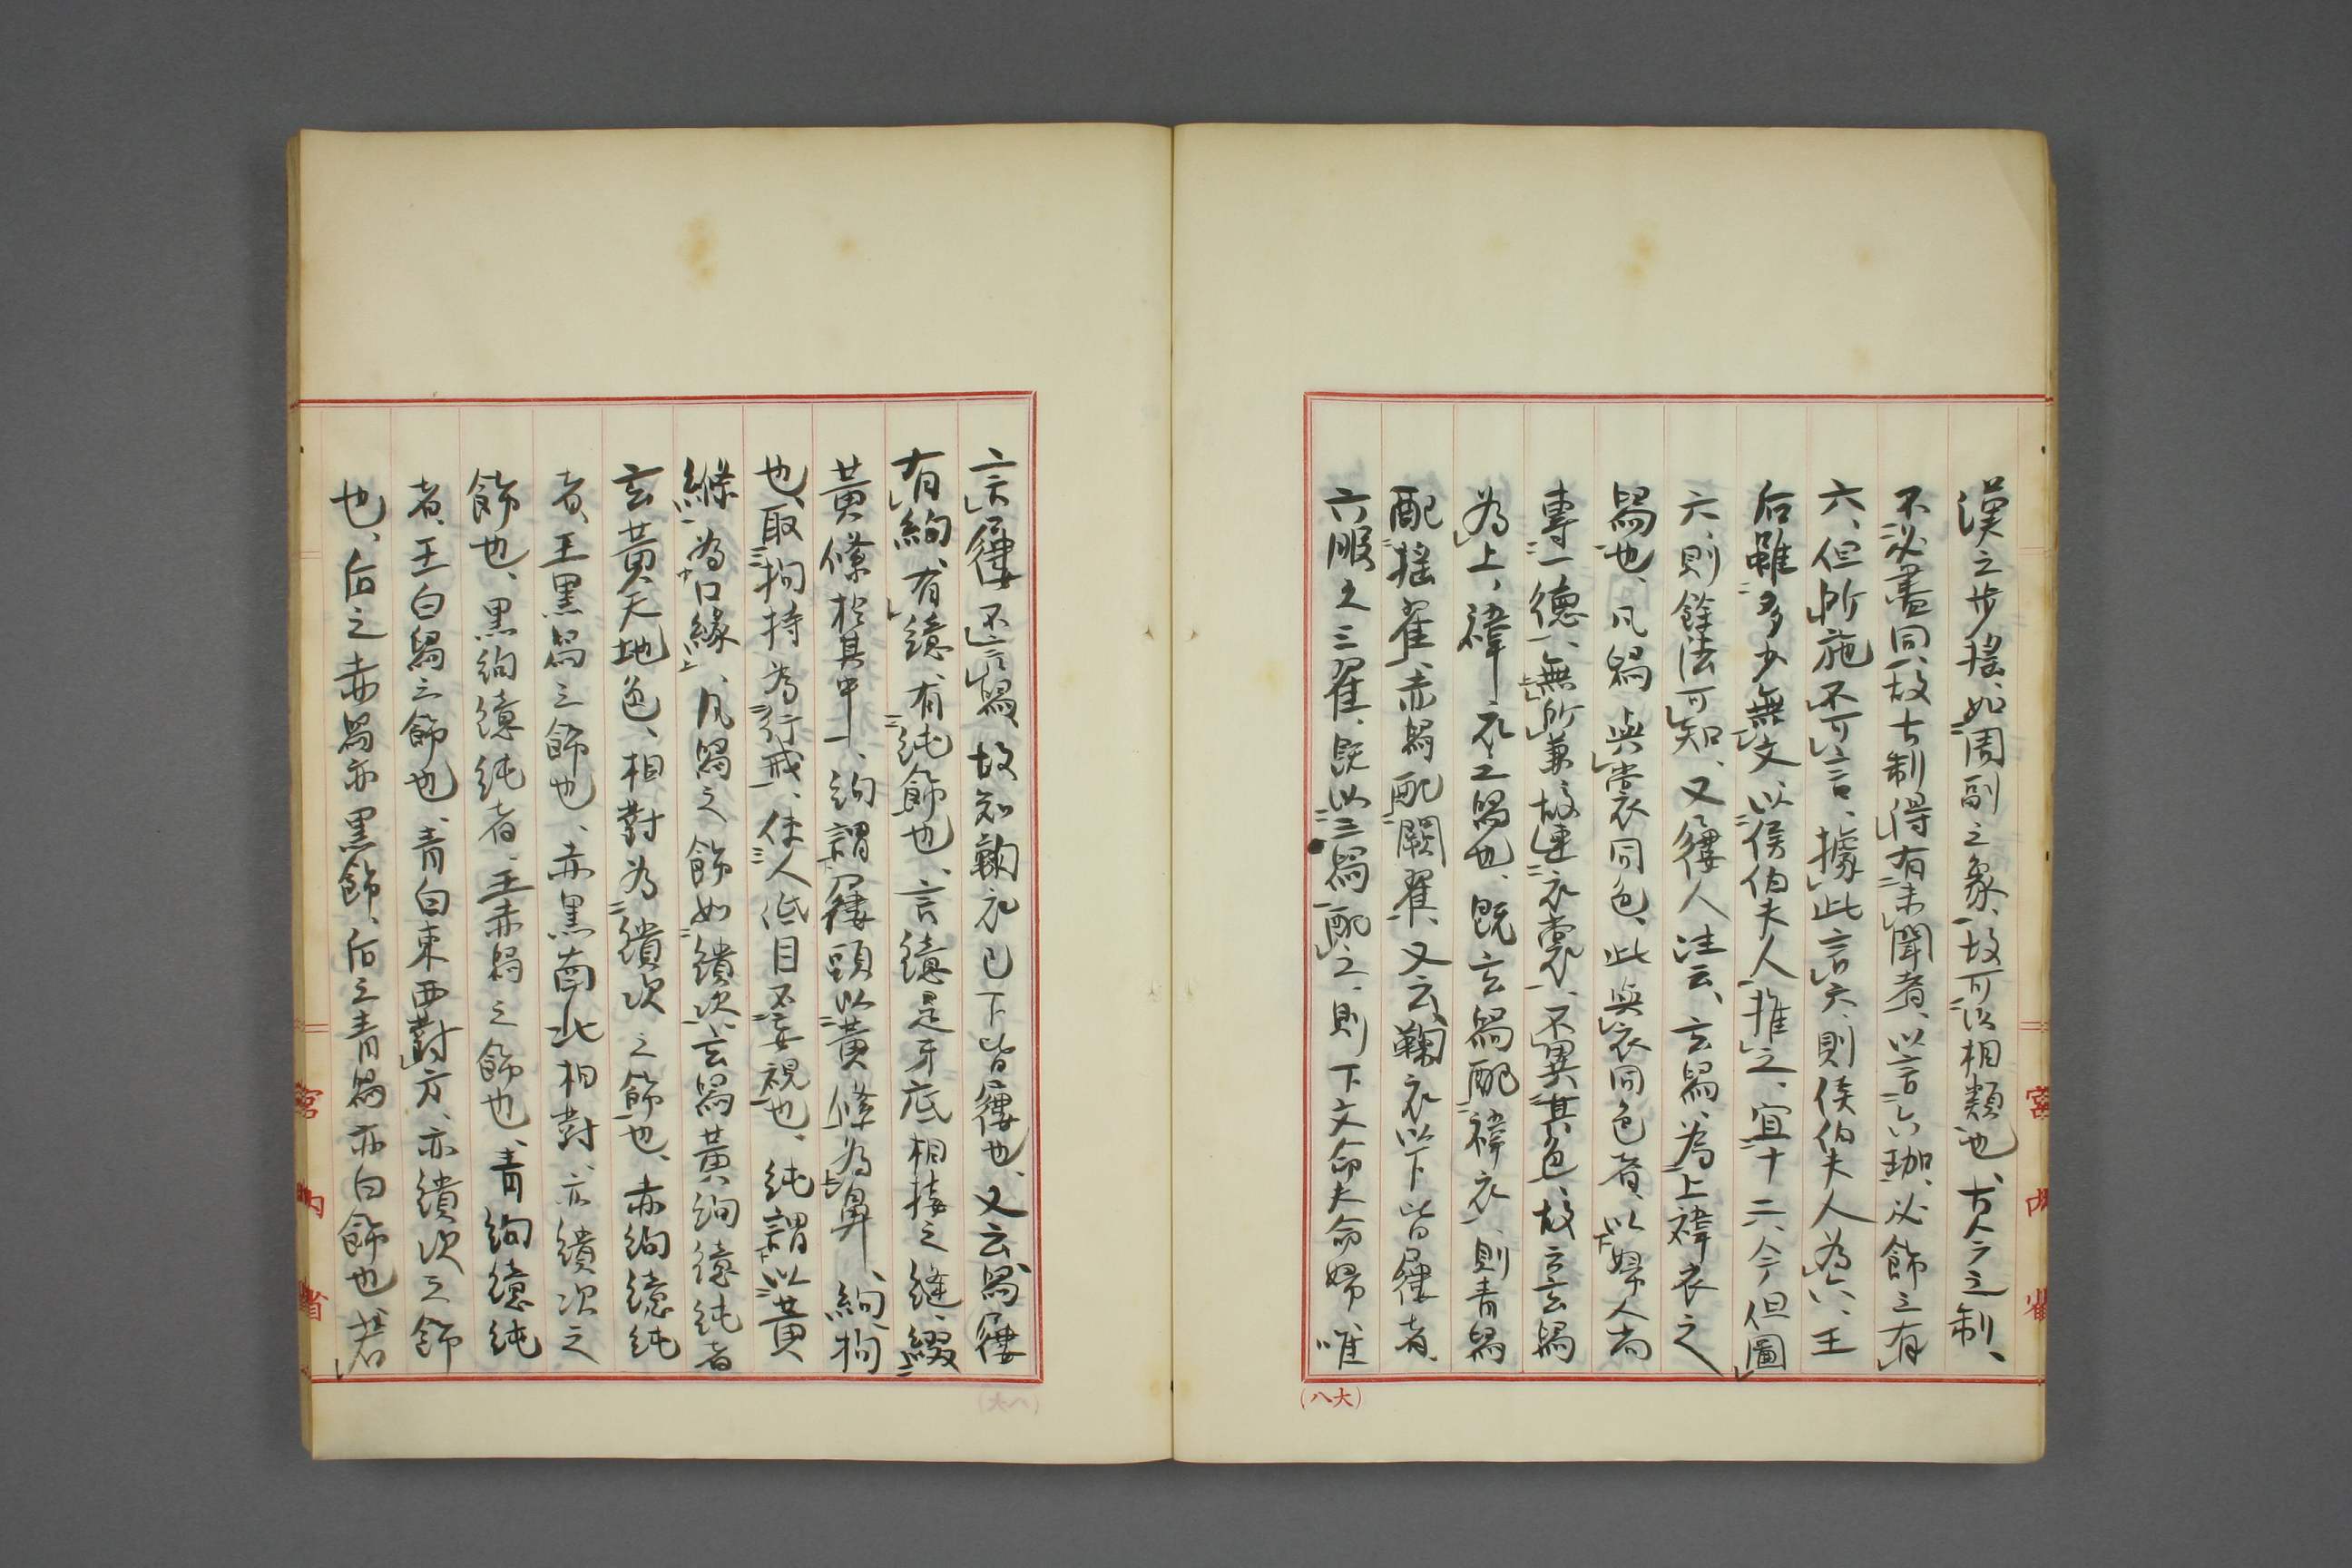 漢之歩揺、如周副之象、故可以相類也、古今之制、
不必盡同、故古制得有未聞者、以言六珈、必飾之有
六、但所施不可言、據此言六、則侯伯夫人為六、王
后雖多少無文、以侯伯夫人推之、宜十二、今但圖
六、則餘法可知、又屨人注云、玄舄、為上褘衣之
舄也、凡舄與裳同色、此與衣同色者、以婦人尚
専一徳、無所兼、故連衣裳、不異其色、故云玄舄
為上、褘衣之舄也、既玄舄配褘衣、則青舄
配揺翟、赤舄配闕翟、又云、鞠衣以下皆屨者、
六服之三翟、既以三舄配之、則下文命夫命婦唯
言屨不言舄、故知鞠衣已下皆屨也、又云、舄屨
有絇、有繶、有純飾也、言繶是牙底相接之縫、綴
黄絛於其中、絇謂屨頭以黄絛為鼻、絇拘
也、取拘持為行戒、使人低目不妄視也、純謂以黄
絛為口縁、凡舄之飾如繢次、玄舄黄絇繶純者
玄黄天地色、相對為繢次之飾也、赤絇繶純
者、王黒舄之飾也、赤黒南北相對、亦繢次之
飾也、黒絇繶純者、王赤舄之飾也、青絇繶純
者、王白舄之飾也、青白東西對方、亦繢次之飾
也、后之赤舄亦黒飾、后之青舄亦白飾也若
宮内省
宮内省
(八大)